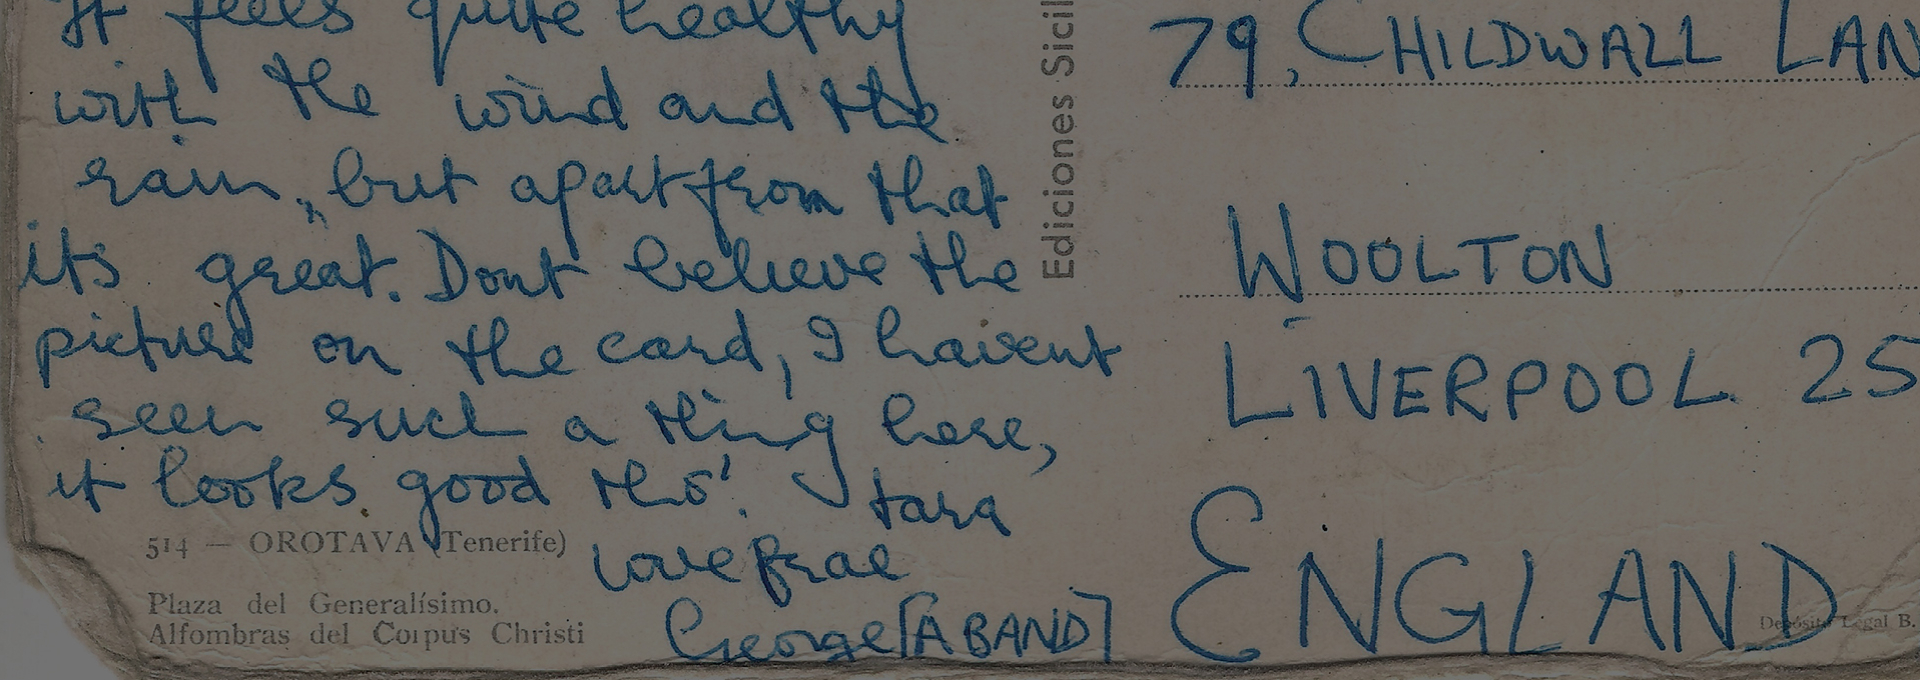 It feels quite healthy
with the wind and the
rain, but apart from that
its great. Dont believe the
picture on the card, I havent
seen such a thing here,
it looks good tho'. tara
love frae
George [A BAND]
514 — OROTAVA (Tenerife)
Plaza del Generalísimo.
Alfombras del Corpus Christi
Ediciones Sicil
79, CHILDWALL LAN
WOOLTON
LIVERPOOL 25
ENGLAND
Depósito Legal B.